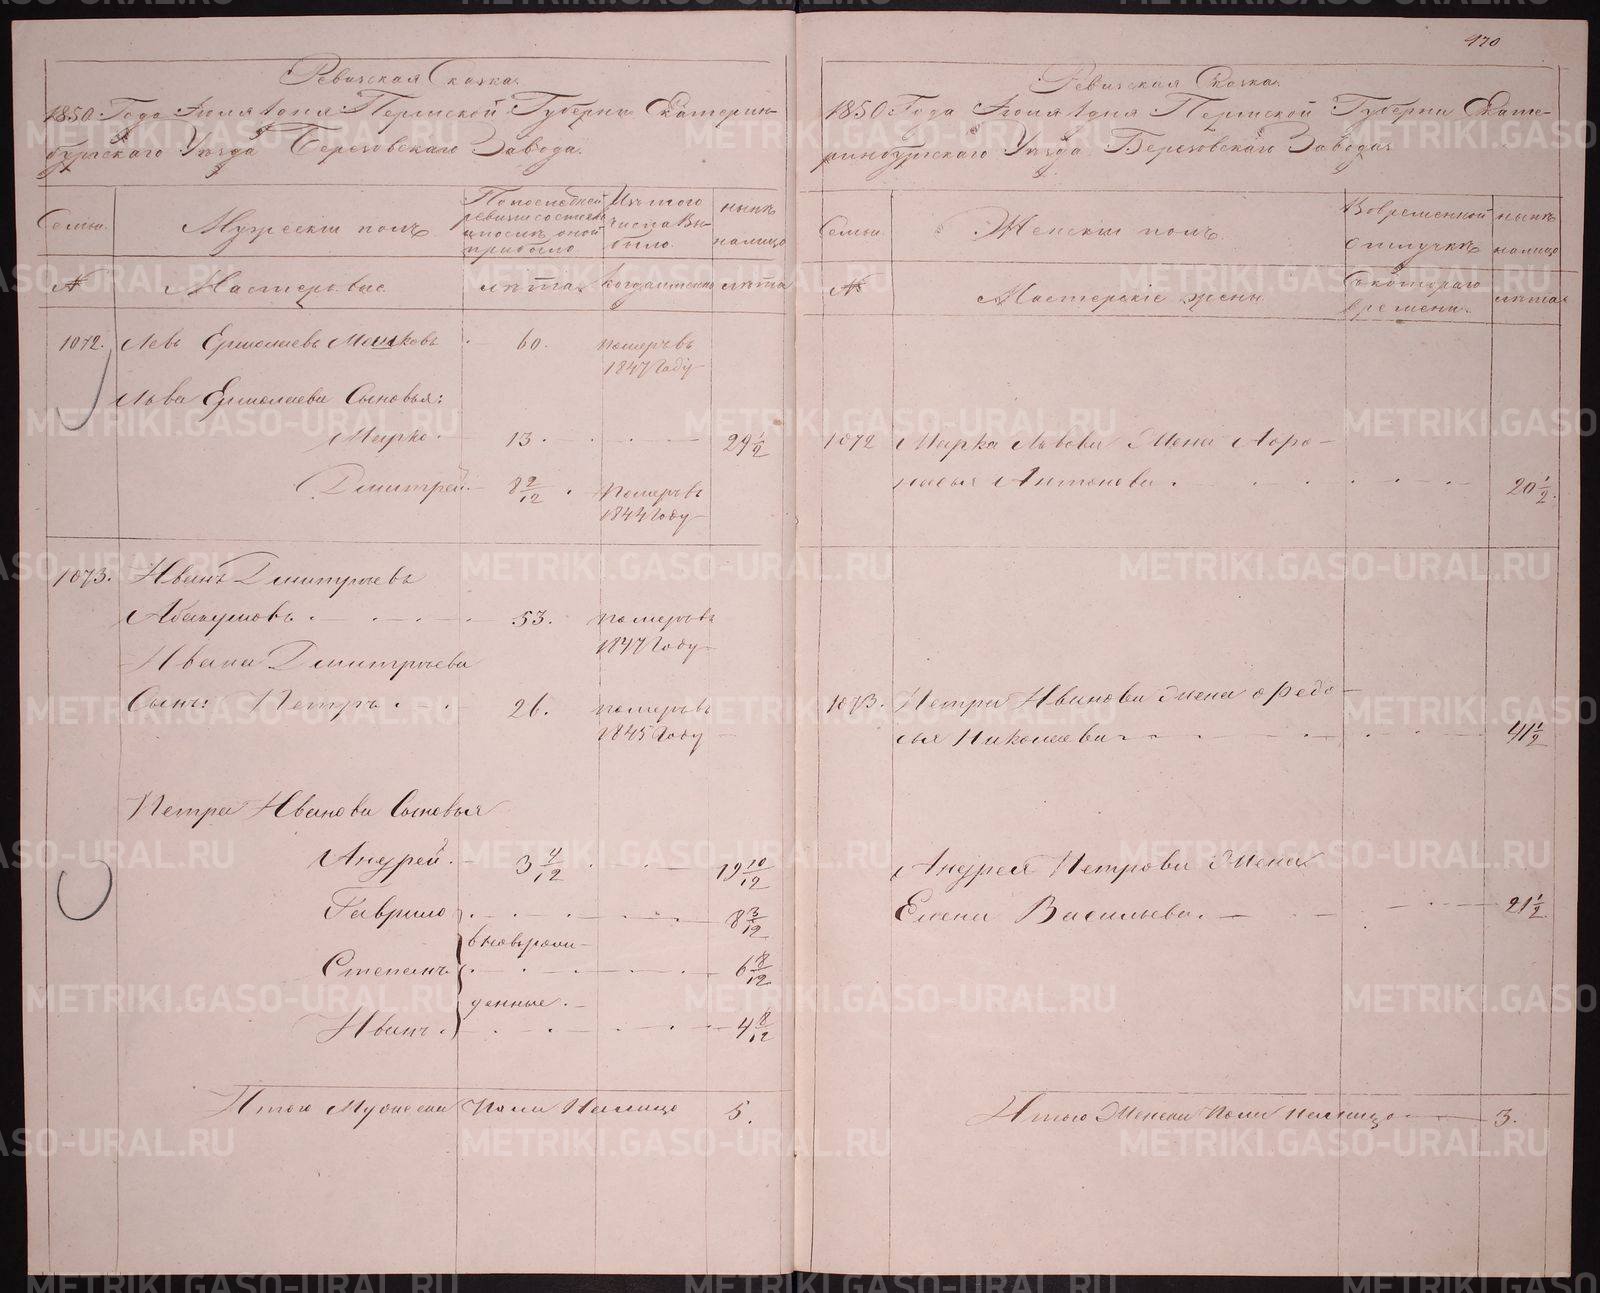 Ревизская Сказка.
1850. Года Июля 1 дня Пермской Губернии Екатерин-
бургскаго Уезда Березовскаго Завода.
Семьи.
Мужескiй полъ
По последней ревизiи состояло и после оной прибыло
Изъ того числа выбыло.
ныне на лицо
№
Мастеровые
лета
когда именно
лета
1072. Левъ Ермолаевъ Машковъ 60. померъ въ
1847 Году
Льва Ермолаева Сыновья:
Марко 13. 29 1/2
Дмитрей 8 2/12 померъ въ
1844 Году
1073. Иванъ Дмитрiевъ
Абакумовъ 53. померъ въ
1847 Году
Ивана Дмитрiева
Сынъ: Петръ 26. померъ въ
1845 Году
Петра Иванова Сыновья
Андрей 3 4/12 19 10/12
Гаврило 8 3/12
вновьрож-
Степанъ 6 8/12
денные
Иванъ 4 8/12
Итого Мужеска Пола Налицо 5.
470
Ревизская Сказка.
1850 Года Июля 1 дня Пермской Губернии Екате-
ринбургскаго Уезда Березовскаго Завода
Семьи
Женскiй полъ
Во временной отлучкѣ
ныне на лицо
№
Мастерскiе жены
Съ котораго времени.
лета
1072 Марка Львова Жена
Антонова 20 1/2.
1073. Петра Иванова Жена Федо-
сья Николаева 41 1/2
Андрея Петрова Жена
Елена Васильева. 21 1/2
Итого Женска Пола Налицо 3.
METRIKI.GASO-URAL.RU